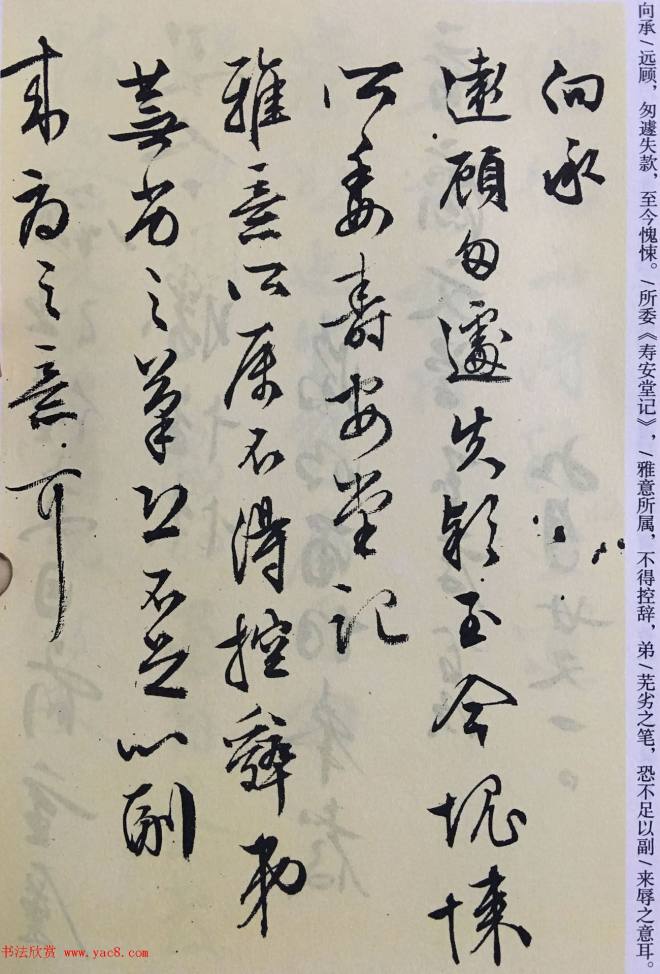 向承/远顾，匆遽失款，至今愧悚。/所委《寿安堂记》，/雅意所属，不得控辞，弟/芜劣之笔，恐不足以副/来辱之意耳。
向承
遠顧匆遽失款至今愧悚
所委壽安堂記
雅意所属不得控辭弟
蕪劣之筆恐不足以副
来辱之意耳
书法欣赏 www.yac8.com